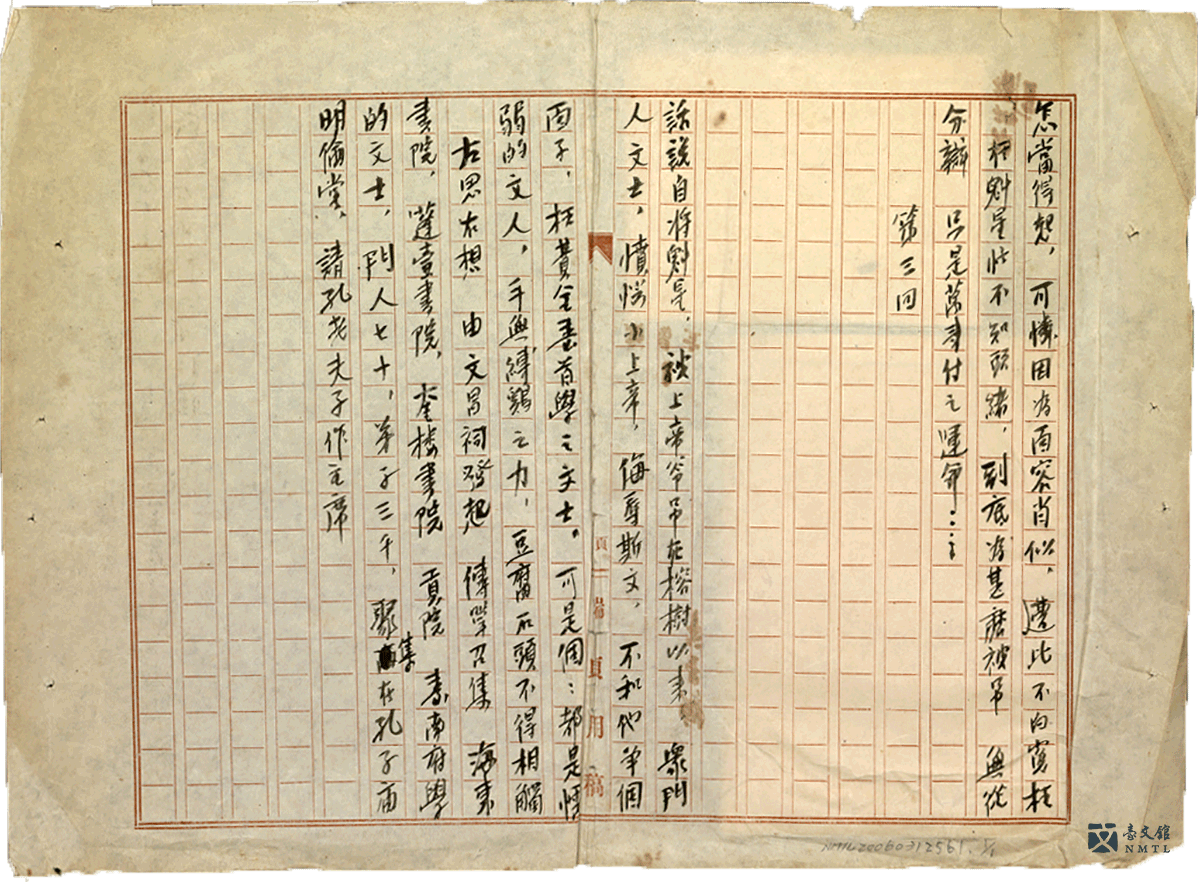 怎當得起，可憐因為面容肖似，遭此不白寃枉
枉魁星此不知頭緒，到底為甚麼被吊 無從
分辯 只是落到付之運命……
第三回
話說自將魁星，被上帝爷吊在榕樹以来 衆門
人文士，憤恨上帝，侮辱斯文，不和他爭個
面子，枉費全臺首學之文士。可是個：都是懦
弱的文人，手無縛鷄之力，豆腐石頭不得相觸
左思右想 由文昌祠發起 傳單召集 海東
書院，蓬壺書院，奎樓書院 貢院 臺南府學
的文士，門人七十，弟子三千，聚集在孔子廟
明倫堂，請孔老夫子作主席
頁一第
頁
用
稿
NMTL20060312561. 1/1
臺文館
NMTL